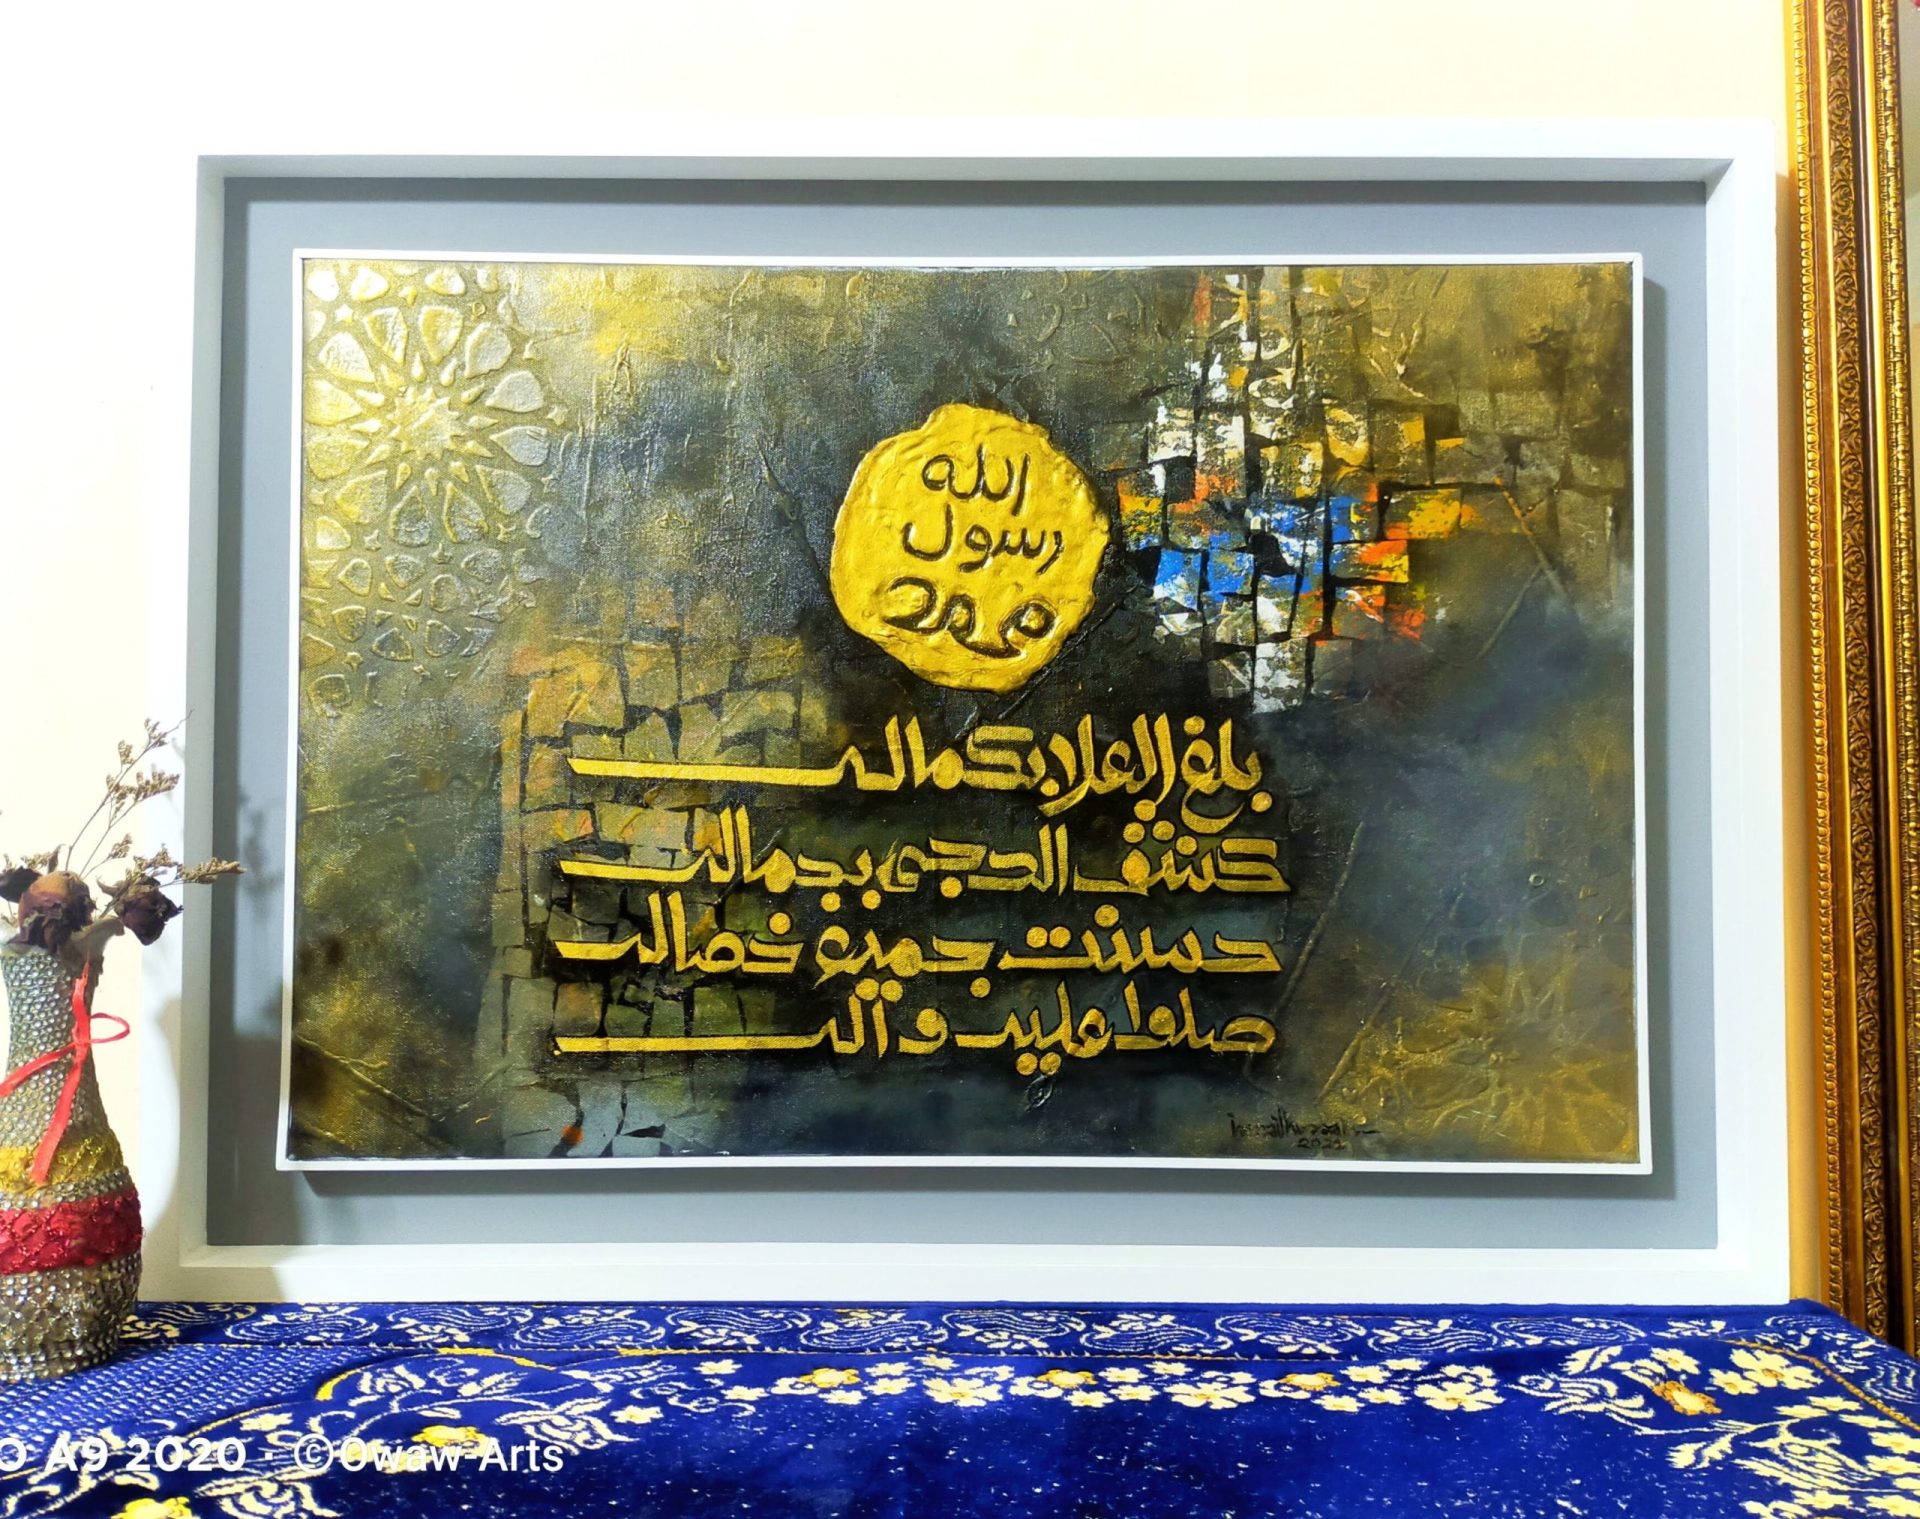 الله
رسول
محمد
بلغ العلا بكماله
كشف الدجى بجماله
حسنت جميع خصاله
صلوا عليه وآله
2021
O A9 2020 · ©Owaw-Arts